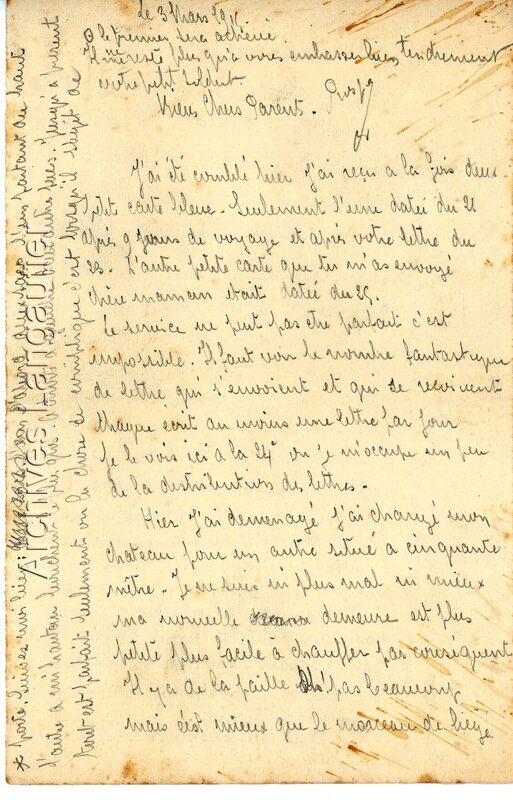 Le 3 Mars 19
le premier sera achevé
Il ne reste plus qu'a vous embasser bien tendrement
votre petit soldat
Prosper
Mes Chers Parent.
J'ai été comblé hier J'ai reçu a la fois deux
petit carte bleue. Seulement l'une datée du 21
après 9 jours de voyage et après votre lettre du
22. L'autre petite carte que tu m'as envoyé
chère maman était datée du 25.
Le service ne peut pas être parfait c'est
impossible. Il faut voir le nombre fantastique
de lettre qui s'envoient et qui se recoivent
chaque écrit au moins une lettre par jour
Je le vois ici a la 24e ou je m'occupe un peu
de la distribution des lettres.
Hier J'ai demenagé J'ai changé mon
chateau pour un autre situé a cinquante
mètre. Je ne suis ni plus mal ni mieux
ma nouvelle demeure est plus
petite plus facile à chauffer par conséquent
Il y a de la paille pas beaucoup
mais c'est mieux que le morceau de liège
* porte, suives en partant du haut
l'autre a mi hauteur
tout est parfait seulement ou la chose se complique c'est lorsqu'il s'agit de
Archives Langaunet